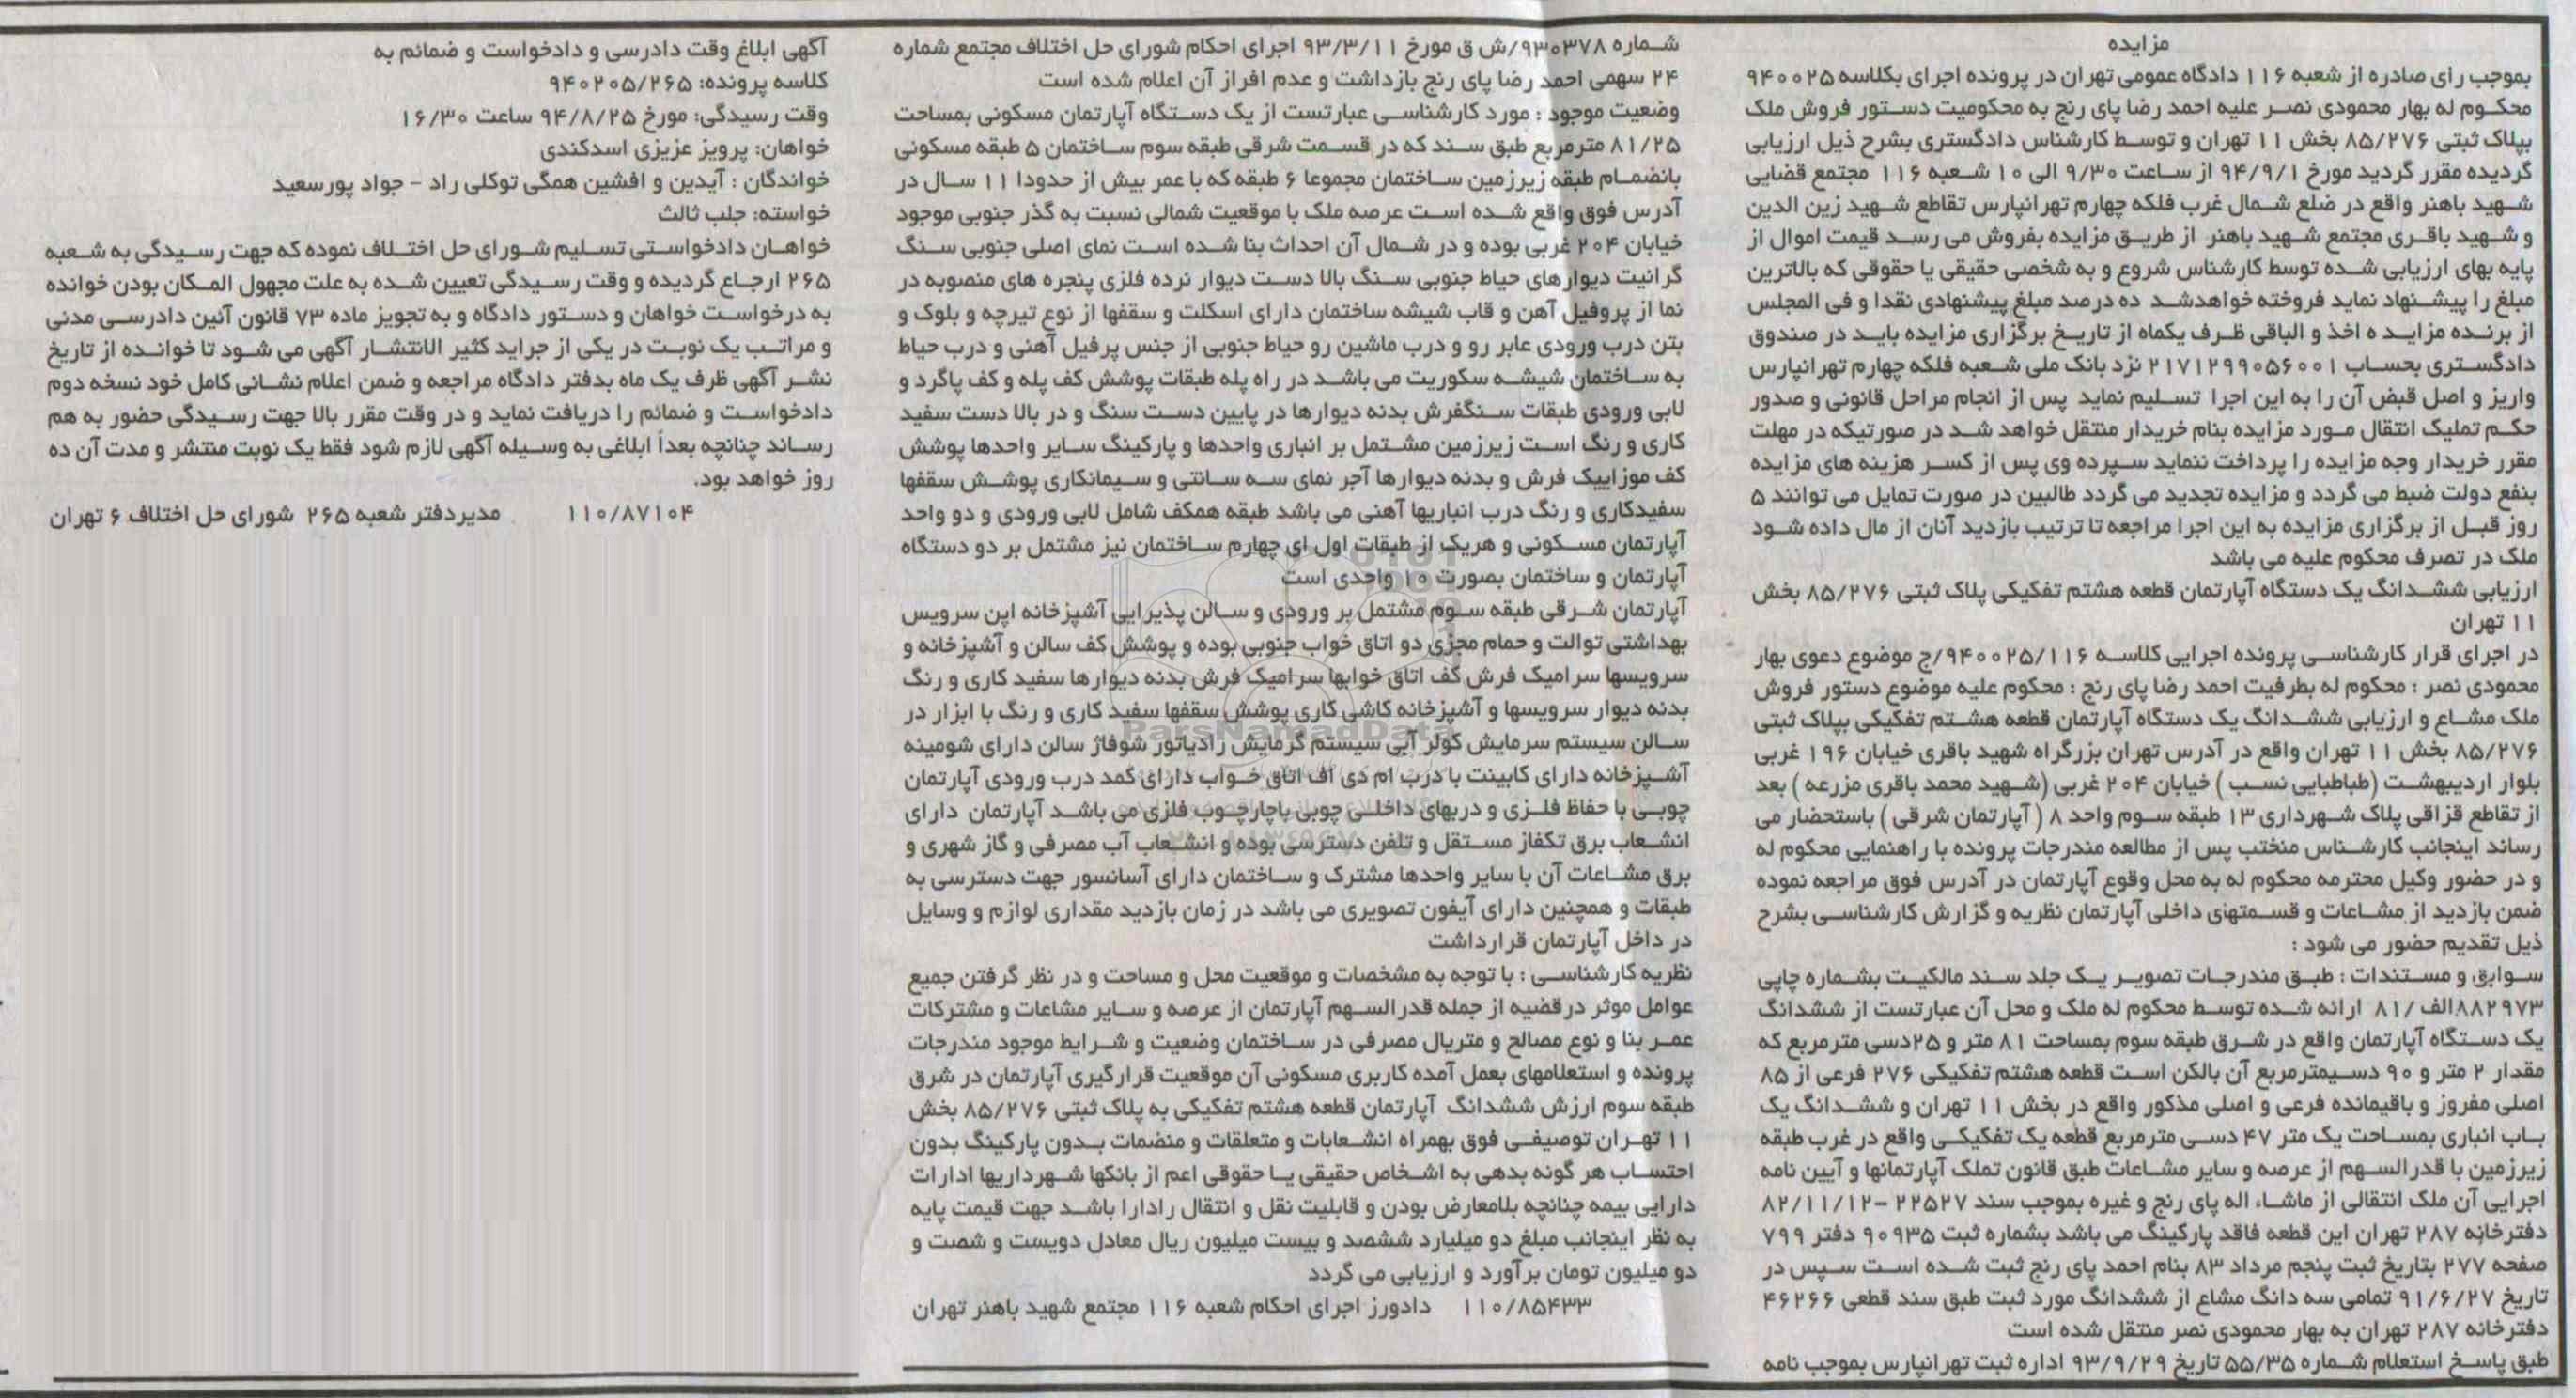 مزایده
بموجب رای صادره از شعبه ۱۱۶ دادگاه عمومی تهران در پرونده اجرای بکلاسه ۹۴۰۰۲۵
محکوم له بهار محمودی نصر علیه احمد رضا پای رنج به محکومیت دستور فروش ملک
بپلاک ثبتی ۸۵/۲۷۶ بخش ۱۱ تهران و توسط کارشناس دادگستری بشرح ذیل ارزیابی
گردیده مقرر گردید مورخ ۹۴/۹/۱ از ساعت ۹/۳۰ الی ۱۰ شعبه ۱۱۶ مجتمع قضایی
شهید باهنر واقع در ضلع شمال غرب فلکه چهارم تهرانپارس تقاطع شهید زین الدین
و شهید باقری مجتمع شهید باهنر از طریق مزایده بفروش می رسد قیمت اموال از
پایه بهای ارزیابی شده توسط کارشناس شروع و به شخصی حقیقی یا حقوقی که بالاترین
مبلغ را پیشنهاد نماید فروخته خواهدشد ده درصد مبلغ پیشنهادی نقدا و فی المجلس
از برنده مزاید ه اخذ و الباقی ظرف یکماه از تاریخ برگزاری مزایده باید در صندوق
دادگستری بحساب ۲۱۷۱۲۹۹۰۵۶۰۰۱ نزد بانک ملی شعبه فلکه چهارم تهرانپارس
واریز و اصل قبض آن را به این اجرا تسلیم نماید پس از انجام مراحل قانونی و صدور
حکم تملیک انتقال مورد مزایده بنام خریدار منتقل خواهد شد در صورتیکه در مهلت
مقرر خریدار وجه مزایده را پرداخت ننماید سپرده وی پس از کسر هزینه های مزایده
بنفع دولت ضبط می گردد و مزایده تجدید می گردد طالبین در صورت تمایل می توانند ۵
روز قبل از برگزاری مزایده به این اجرا مراجعه تا ترتیب بازدید آنان از مال داده شود
ملک در تصرف محکوم علیه می باشد
ارزیابی ششدانگ یک دستگاه آپارتمان قطعه هشتم تفکیکی پلاک ثبتی ۸۵/۲۷۶ بخش
۱۱ تهران
در اجرای قرار کارشناسی پرونده اجرایی کلاسه ۹۴۰۰۲۵/۱۱۶/ج موضوع دعوی بهار
محمودی نصر : محکوم له بطرفیت احمد رضا پای رنج : محکوم علیه موضوع دستور فروش
ملک مشاع و ارزیابی ششدانگ یک دستگاه آپارتمان قطعه هشتم تفکیکی بپلاک ثبتی
۸۵/۲۷۶ بخش ۱۱ تهران واقع در آدرس تهران بزرگراه شهید باقری خیابان ۱۹۶ غربی
بلوار اردیبهشت (طباطبایی نسب ) خیابان ۲۰۴ غربی (شهید محمد باقری مزرعه ) بعد
از تقاطع قزاقی پلاک شهرداری ۱۳ طبقه سوم واحد ۸ ( آپارتمان شرقی ) باستحضار می
رساند اینجانب کارشناس منتخب پس از مطالعه مندرجات پرونده با راهنمایی محکوم له
و در حضور وکیل محترمه محکوم له به محل وقوع آپارتمان در آدرس فوق مراجعه نموده
ضمن بازدید از مشاعات و قسمتهای داخلی آپارتمان نظریه و گزارش کارشناسی بشرح
ذیل تقدیم حضور می شود :
سوابق و مستندات : طبق مندرجات تصویر یک جلد سند مالکیت بشماره چاپی
۸۸۲۹۷۳الف /۸۱ ارائه شده توسط محکوم له ملک و محل آن عبارتست از ششدانگ
یک دستگاه آپارتمان واقع در شرق طبقه سوم بمساحت ۸۱ متر و ۲۵دسی مترمربع که
مقدار ۲ متر و ۹۰ دسیمترمربع آن بالکن است قطعه هشتم تفکیکی ۲۷۶ فرعی از ۸۵
اصلی مفروز و باقیمانده فرعی و اصلی مذکور واقع در بخش ۱۱ تهران و ششدانگ یک
باب انباری بمساحت یک متر ۴۷ دسی مترمربع قطعه یک تفکیکی واقع در غرب طبقه
زیرزمین با قدرالسهم از عرصه و سایر مشاعات طبق قانون تملک آپارتمانها و آیین نامه
اجرایی آن ملک انتقالی از ماشاء اله پای رنج و غیره بموجب سند ۲۲۵۲۷ -۸۲/۱۱/۱۲
دفترخانه ۲۸۷ تهران این قطعه فاقد پارکینگ می باشد بشماره ثبت ۹۰۹۳۵ دفتر ۷۹۹
صفحه ۲۷۷ بتاریخ ثبت پنجم مرداد ۸۳ بنام احمد پای رنج ثبت شده است سپس در
تاریخ ۹۱/۶/۲۷ تمامی سه دانگ مشاع از ششدانگ مورد ثبت طبق سند قطعی ۴۶۲۶۶
دفترخانه ۲۸۷ تهران به بهار محمودی نصر منتقل شده است
طبق پاسخ استعلام شماره ۵۵/۳۵ تاریخ ۹۳/۹/۲۹ اداره ثبت تهرانپارس بموجب نامه
شماره ۹۳۰۳۷۸/ش ق مورخ ۹۳/۳/۱۱ اجرای احکام شورای حل اختلاف مجتمع شماره
۲۴ سهمی احمد رضا پای رنج بازداشت و عدم افراز آن اعلام شده است
وضعیت موجود : مورد کارشناسی عبارتست از یک دستگاه آپارتمان مسکونی بمساحت
۸۱/۲۵ مترمربع طبق سند که در قسمت شرقی طبقه سوم ساختمان ۵ طبقه مسکونی
بانضمام طبقه زیرزمین ساختمان مجموعا ۶ طبقه که با عمر بیش از حدودا ۱۱ سال در
آدرس فوق واقع شده است عرصه ملک با موقعیت شمالی نسبت به گذر جنوبی موجود
خیابان ۲۰۴ غربی بوده و در شمال آن احداث بنا شده است نمای اصلی جنوبی سنگ
گرانیت دیوارهای حیاط جنوبی سنگ بالا دست دیوار نرده فلزی پنجره های منصوبه در
نما از پروفیل آهن و قاب شیشه ساختمان دارای اسکلت و سقفها از نوع تیرچه و بلوک و
بتن درب ورودی عابر رو و درب ماشین رو حیاط جنوبی از جنس پرفیل آهنی و درب حیاط
به ساختمان شیشه سکوریت می باشد در راه پله طبقات پوشش کف پله و کف پاگرد و
لابی ورودی طبقات سنگفرش بدنه دیوارها در پایین دست سنگ و در بالا دست سفید
کاری و رنگ است زیرزمین مشتمل بر انباری واحدها و پارکینگ سایر واحدها پوشش
کف موزاییک فرش و بدنه دیوارها آجر نمای سه سانتی و سیمانکاری پوشش سقفها
سفیدکاری و رنگ درب انباریها آهنی می باشد طبقه همکف شامل لابی ورودی و دو واحد
آپارتمان مسکونی و هریک از طبقات اول ای چهارم ساختمان نیز مشتمل بر دو دستگاه
آپارتمان و ساختمان بصورت ۱۰ واحدی است
آپارتمان شرقی طبقه سوم مشتمل بر ورودی و سالن پذیرایی آشپزخانه اپن سرویس
بهداشتی توالت و حمام مجزی دو اتاق خواب جنوبی بوده و پوشش کف سالن و آشپزخانه و
سرویسها سرامیک فرش کف اتاق خوابها سرامیک فرش بدنه دیوارها سفید کاری و رنگ
بدنه دیوار سرویسها و آشپزخانه کاشی کاری پوشش سقفها سفید کاری و رنگ با ابزار در
سالن سیستم سرمایش کولر آبی سیستم گرمایش رادیاتور شوفاژ سالن دارای شومینه
آشپزخانه دارای کابینت با درب ام دی اف اتاق خواب دارای کمد درب ورودی آپارتمان
چوبی با حفاظ فلزی و دربهای داخلی چوبی باچارچوب فلزی می باشد آپارتمان دارای
انشعاب برق تکفاز مستقل و تلفن دسترسی بوده و انشعاب آب مصرفی و گاز شهری و
برق مشاعات آن با سایر واحدها مشترک و ساختمان دارای آسانسور جهت دسترسی به
طبقات و همچنین دارای آیفون تصویری می باشد در زمان بازدید مقداری لوازم و وسایل
در داخل آپارتمان قرارداشت
نظریه کارشناسی : با توجه به مشخصات و موقعیت محل و مساحت و در نظر گرفتن جمیع
عوامل موثر در قضیه از جمله قدرالسهم آپارتمان از عرصه و سایر مشاعات و مشترکات
عمر بنا و نوع مصالح و متریال مصرفی در ساختمان وضعیت و شرایط موجود مندرجات
پرونده و استعلامهای بعمل آمده کاربری مسکونی آن موقعیت قرارگیری آپارتمان در شرق
طبقه سوم ارزش ششدانگ آپارتمان قطعه هشتم تفکیکی به پلاک ثبتی ۸۵/۲۷۶ بخش
۱۱ تهران توصیفی فوق بهمراه انشعابات و متعلقات و منضمات بدون پارکینگ بدون
احتساب هر گونه بدهی به اشخاص حقیقی یا حقوقی اعم از بانکها شهرداریها ادارات
دارایی بیمه چنانچه بلامعارض بودن و قابلیت نقل و انتقال رادارا باشد جهت قیمت پایه
به نظر اینجانب مبلغ دو میلیارد ششصد و بیست میلیون ریال معادل دویست و شصت و
دو میلیون تومان برآورد و ارزیابی می گردد
۱۱۰/۸۵۴۳۳ دادورز اجرای احکام شعبه ۱۱۶ مجتمع شهید باهنر تهران
آگهی ابلاغ وقت دادرسی و دادخواست و ضمائم به
کلاسه پرونده: ۹۴۰۲۰۵/۲۶۵
وقت رسیدگی: مورخ ۹۴/۸/۲۵ ساعت ۱۶/۳۰
خواهان: پرویز عزیزی اسدکندی
خواندگان : آیدین و افشین همگی توکلی راد - جواد پورسعید
خواسته: جلب ثالث
خواهان دادخواستی تسلیم شورای حل اختلاف نموده که جهت رسیدگی به شعبه
۲۶۵ ارجاع گردیده و وقت رسیدگی تعیین شده به علت مجهول المکان بودن خوانده
به درخواست خواهان و دستور دادگاه و به تجویز ماده ۷۳ قانون آئین دادرسی مدنی
و مراتب یک نوبت در یکی از جراید کثیر الانتشار آگهی می شود تا خوانده از تاریخ
نشر آگهی ظرف یک ماه بدفتر دادگاه مراجعه و ضمن اعلام نشانی کامل خود نسخه دوم
دادخواست و ضمائم را دریافت نماید و در وقت مقرر بالا جهت رسیدگی حضور به هم
رساند چنانچه بعداً ابلاغی به وسیله آگهی لازم شود فقط یک نوبت منتشر و مدت آن ده
روز خواهد بود.
۱۱۰/۸۷۱۰۴ مدیردفتر شعبه ۲۶۵ شورای حل اختلاف ۶ تهران
ParsNamadData